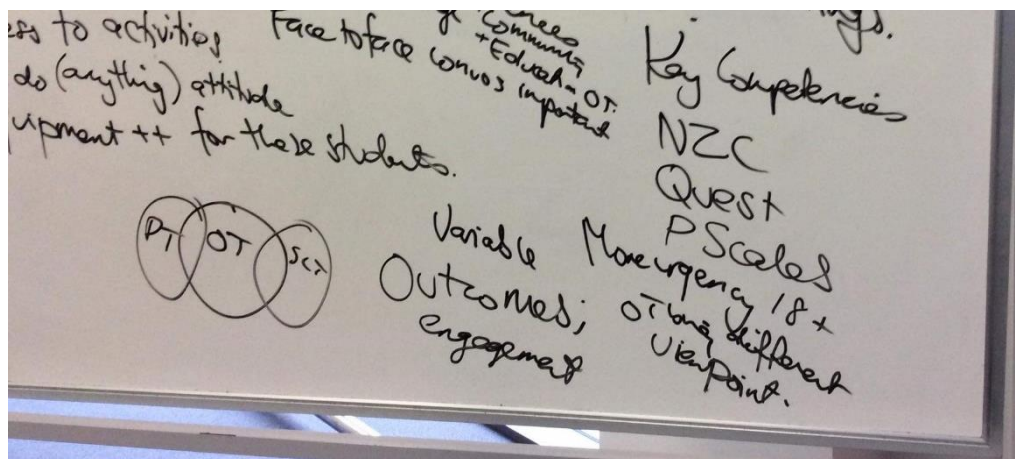 to activities
do (anything) attitude
++ for these students.
Face to face convos important
Community
+ OT.
Key Competencies
NZC
Quest
P Scales
PT OT SLT
Variable
Outcomes;
engagement
More urgency 18+
OT bring different
viewpoint.